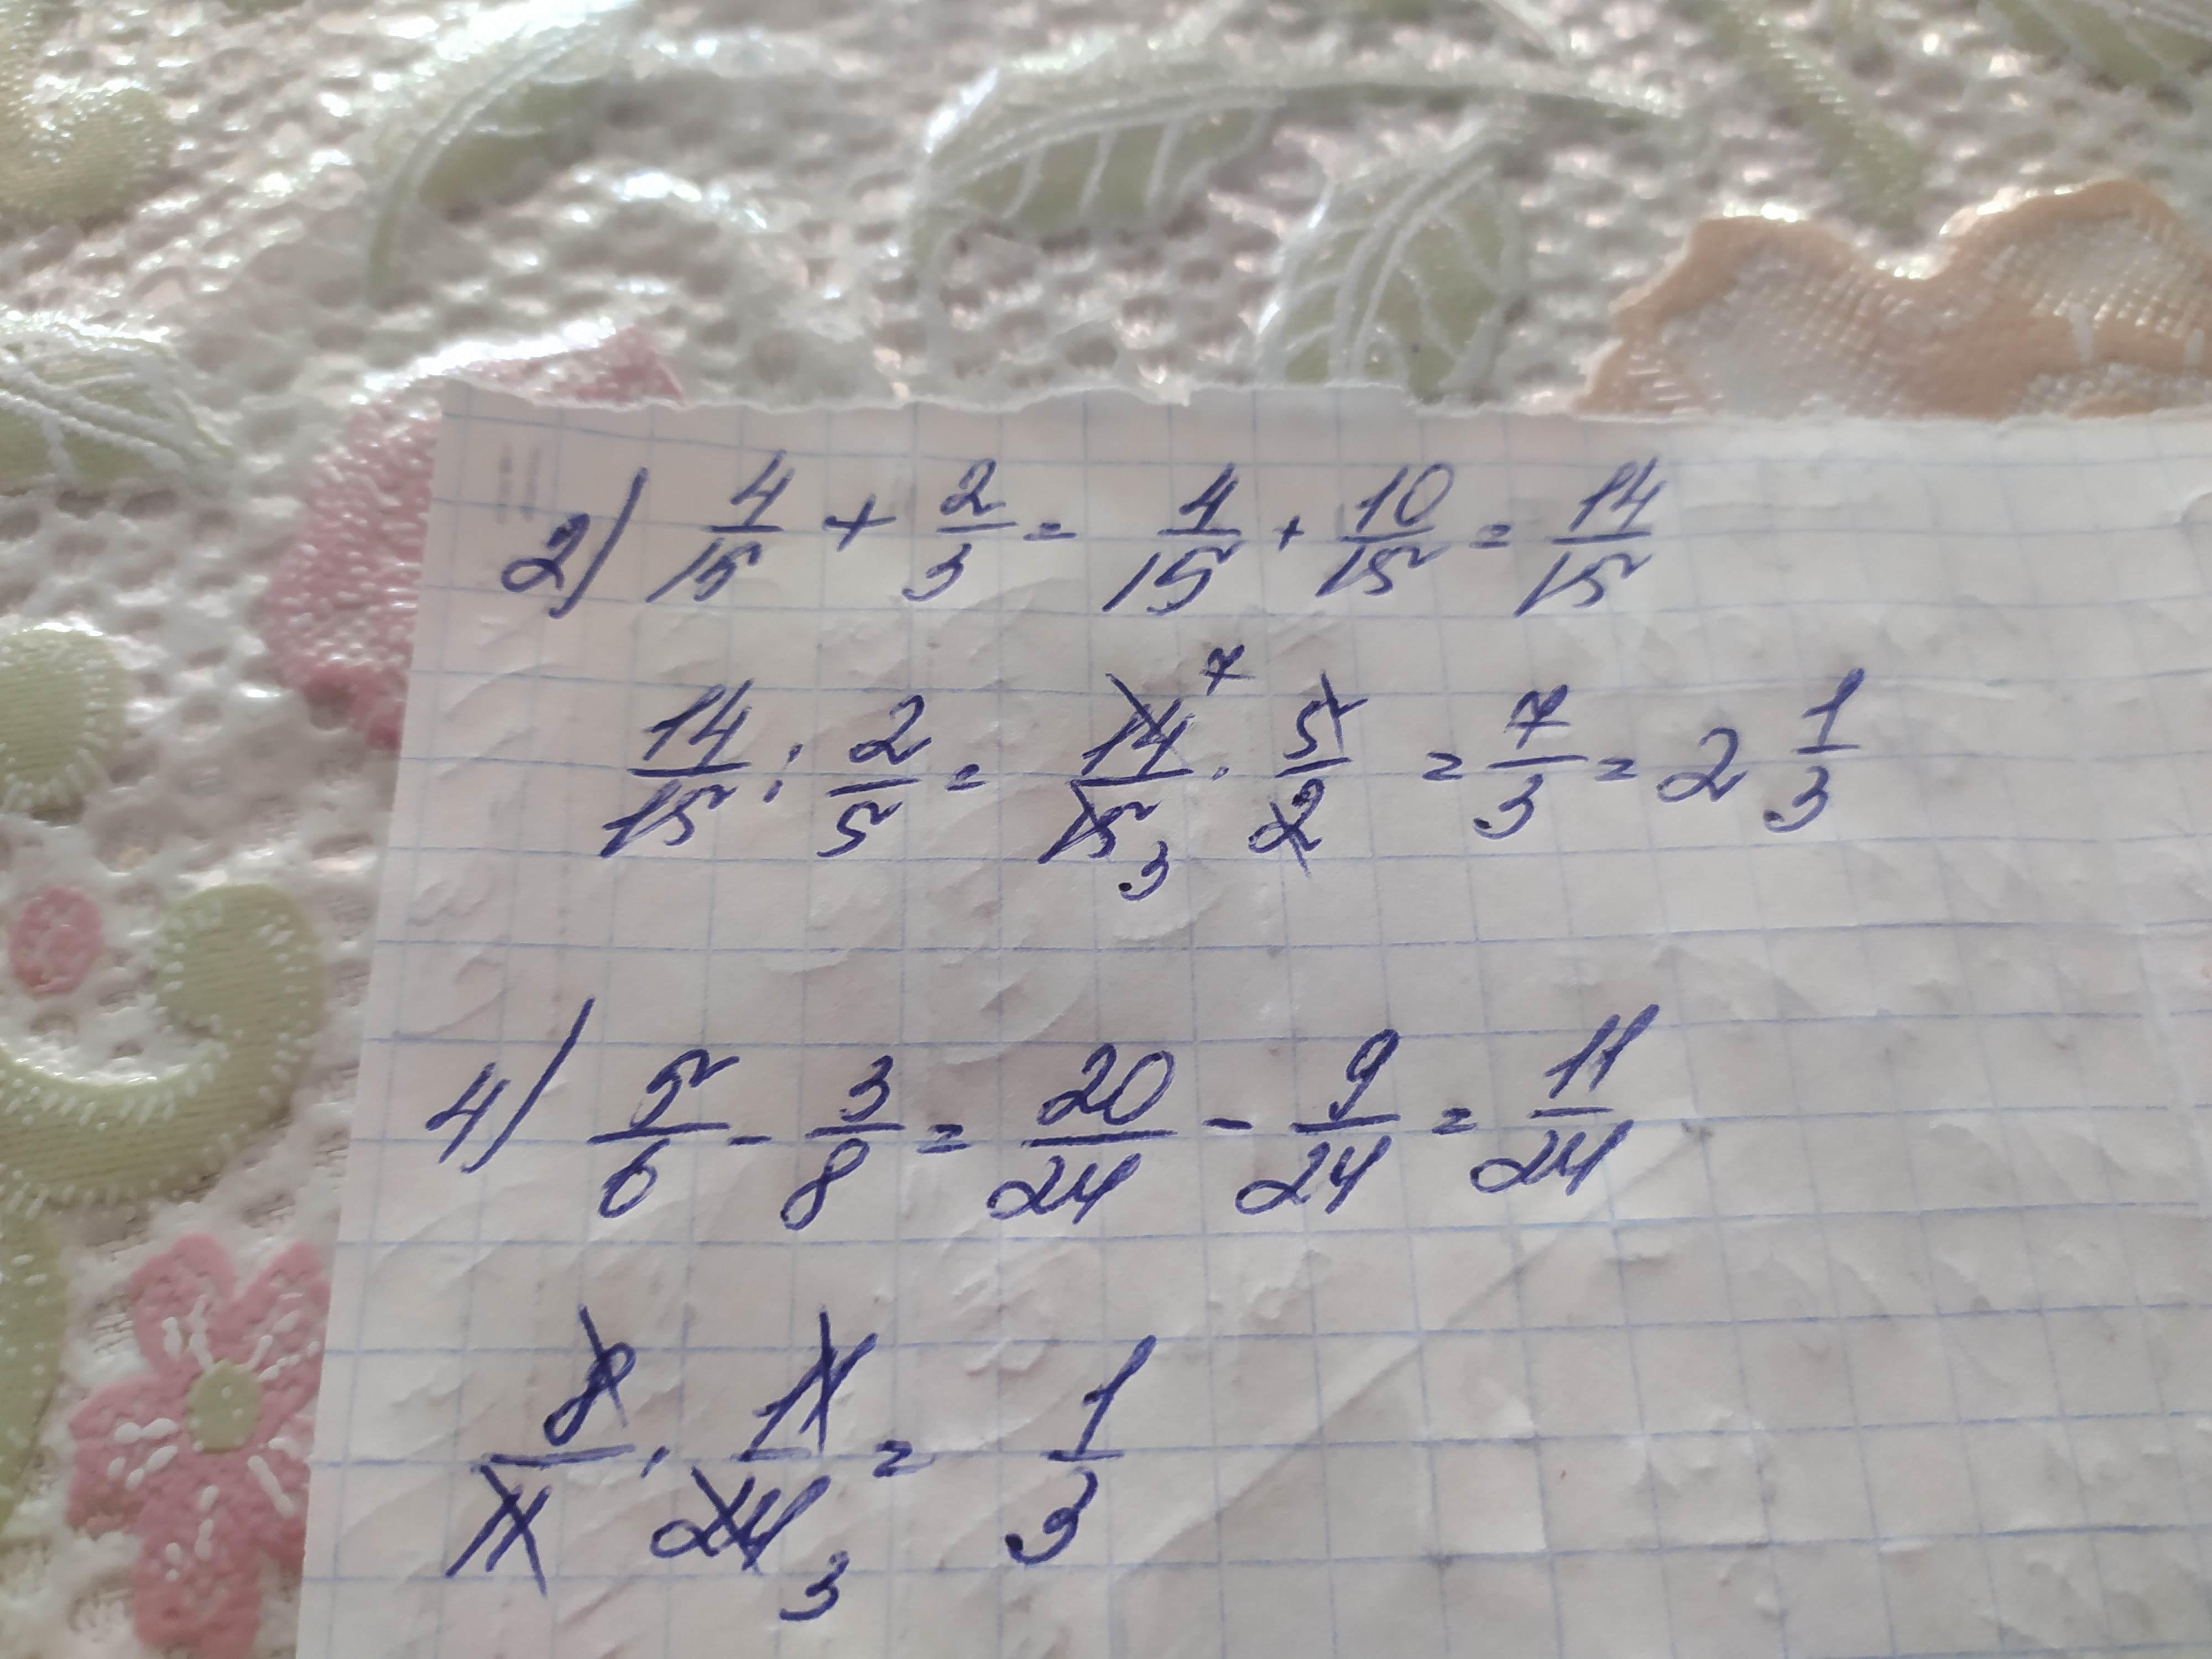 2) 4/15 + 2/3 = 4/15 + 10/15 = 14/15
14/15 : 2/5 = 14 7/15 3 · 5/2 = 7/3 = 2 1/3
4) 5/6 - 3/8 = 20/24 - 9/24 = 11/24
8/11 · 11/24 3 = 1/3